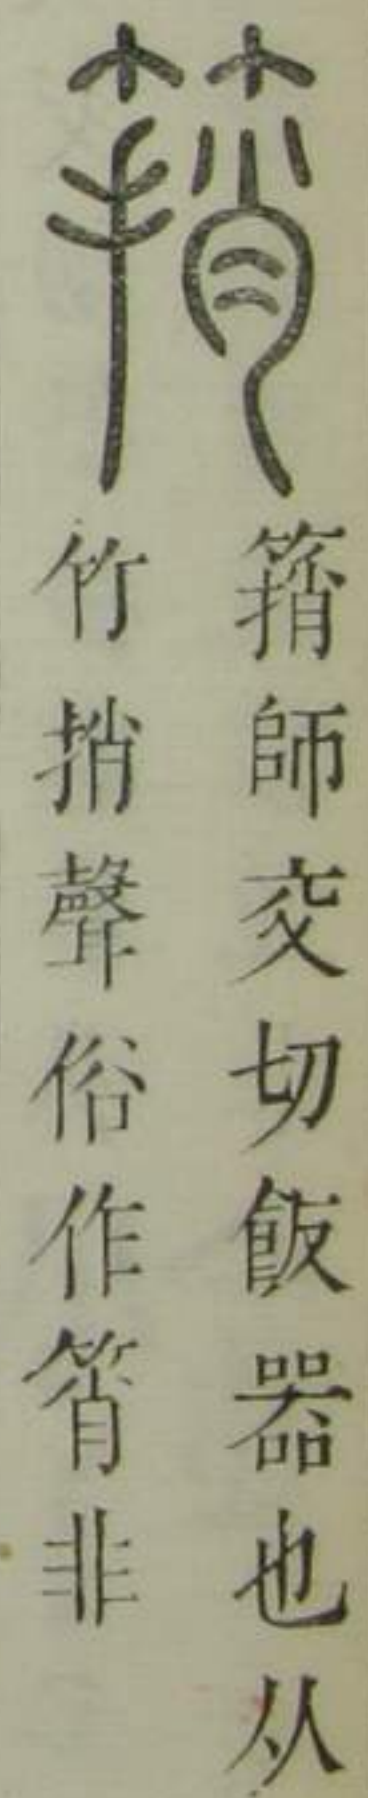 䈰師交切飯器也从
竹捎聲俗作筲非